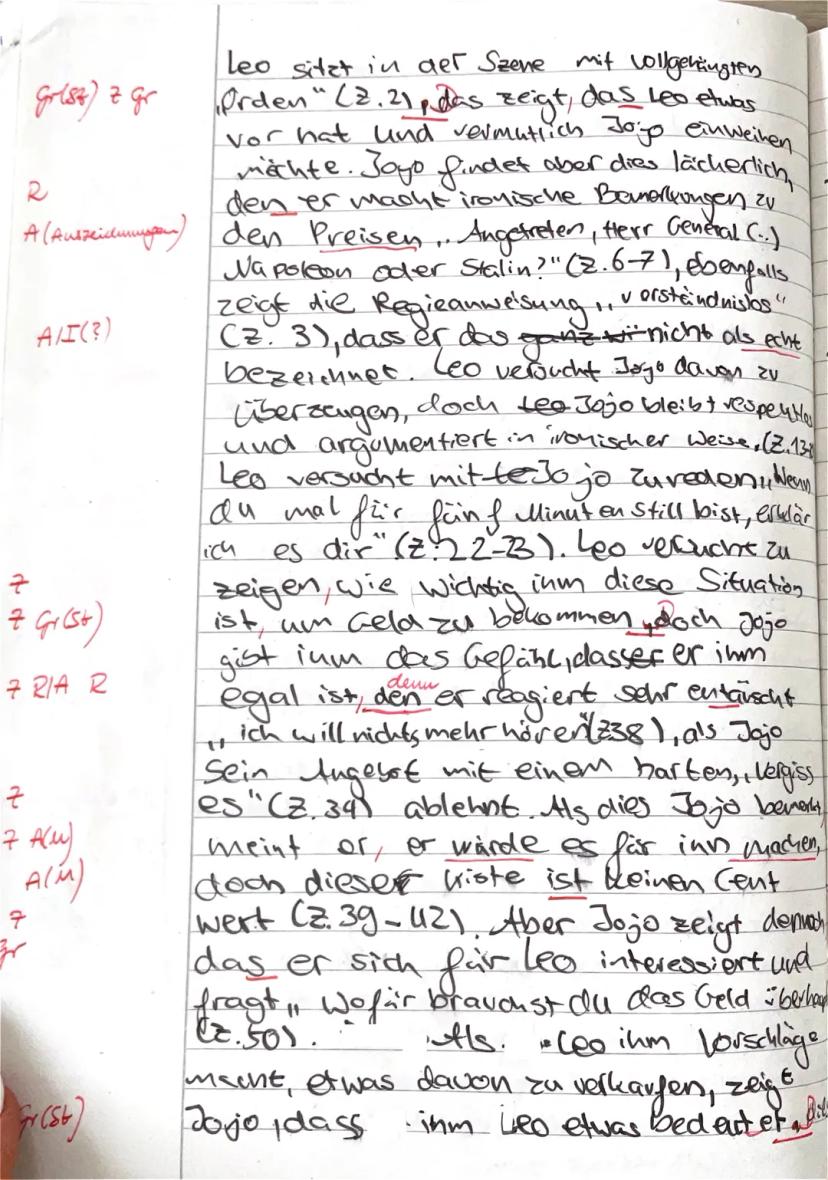 Leo sitzt in der Szene mit vollgehängten
Gr(St) Z Gr „Orden" (Z.2), das zeigt, das Leo etwas
vor hat und vermutlich Jojo einweihen
möchte. Jojo findet aber dies lächerlich,
R den er macht ironische Bemerkungen zu
A (Auszeichnungen) den Preisen „Angetreten, Herr General (..)
Napoleon oder Stalin?" (Z.6-7), ebenfalls
zeigt die Regieanweisung „verständnislos"
A/I(?) (Z. 3), dass er das nicht als echt
bezeichnet. Leo versucht Jojo davon zu
überzeugen, doch Leo Jojo bleibt respektlos
und argumentiert in ironischer Weise, (Z.13-
Leo versucht mit Jojo zu reden „Wenn
du mal für fünf Minuten still bist, erklär
ich es dir" (Z. 22-23). Leo versucht zu
Z zeigen, wie wichtig ihm diese Situation
Z Gr(St) ist, um Geld zu bekommen, doch Jojo
gibt ihm das Gefühl, dass er ihm
denn
Z R/A R egal ist, den er reagiert sehr entäuscht
„ich will nichts mehr hören" (Z38), als Jojo
sein Angebot mit einem harten, „Vergiss
Z es" (Z. 34) ablehnt. Als dies Jojo bemerkt,
Z A(M) meint er, er würde es für ihn machen,
A(M) doch dieser Kiste ist keinen Cent
Z wert (Z. 39-42). Aber Jojo zeigt dennoch
Gr das er sich für Leo interessiert und
fragt „Wofür brauchst du das Geld überhaupt
(Z. 50). Als Leo ihm Vorschläge
macht, etwas davon zu verkaufen, zeigt
Gr(St) Jojo, dass ihm Leo etwas bedeutet,